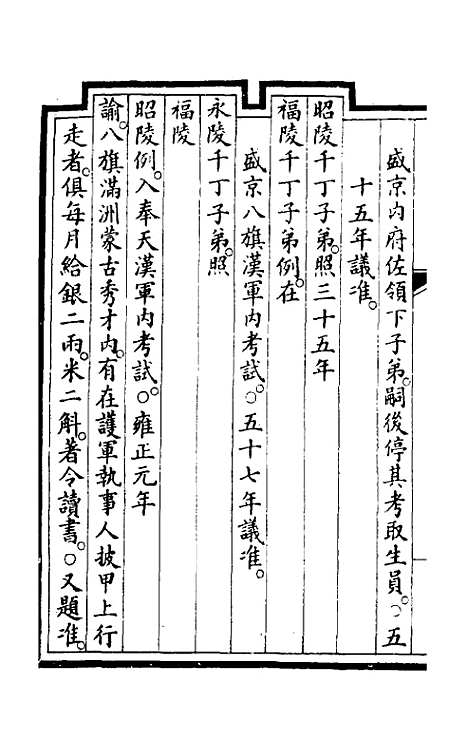 盛京内府佐領下子弟。嗣後停其考取生員。○五
十五年議准。
昭陵千丁子弟。照三十五年
福陵千丁子弟例。在
盛京八旗漢軍内考試。○五十七年議准。
永陵千丁子弟。照
福陵
昭陵例。入奉天漢軍内考試。○雍正元年
諭。八旗滿洲蒙古秀才内。有在護軍執事人披甲上行
走者。俱每月給銀二兩。米二斛。著令讀書。○又題准。